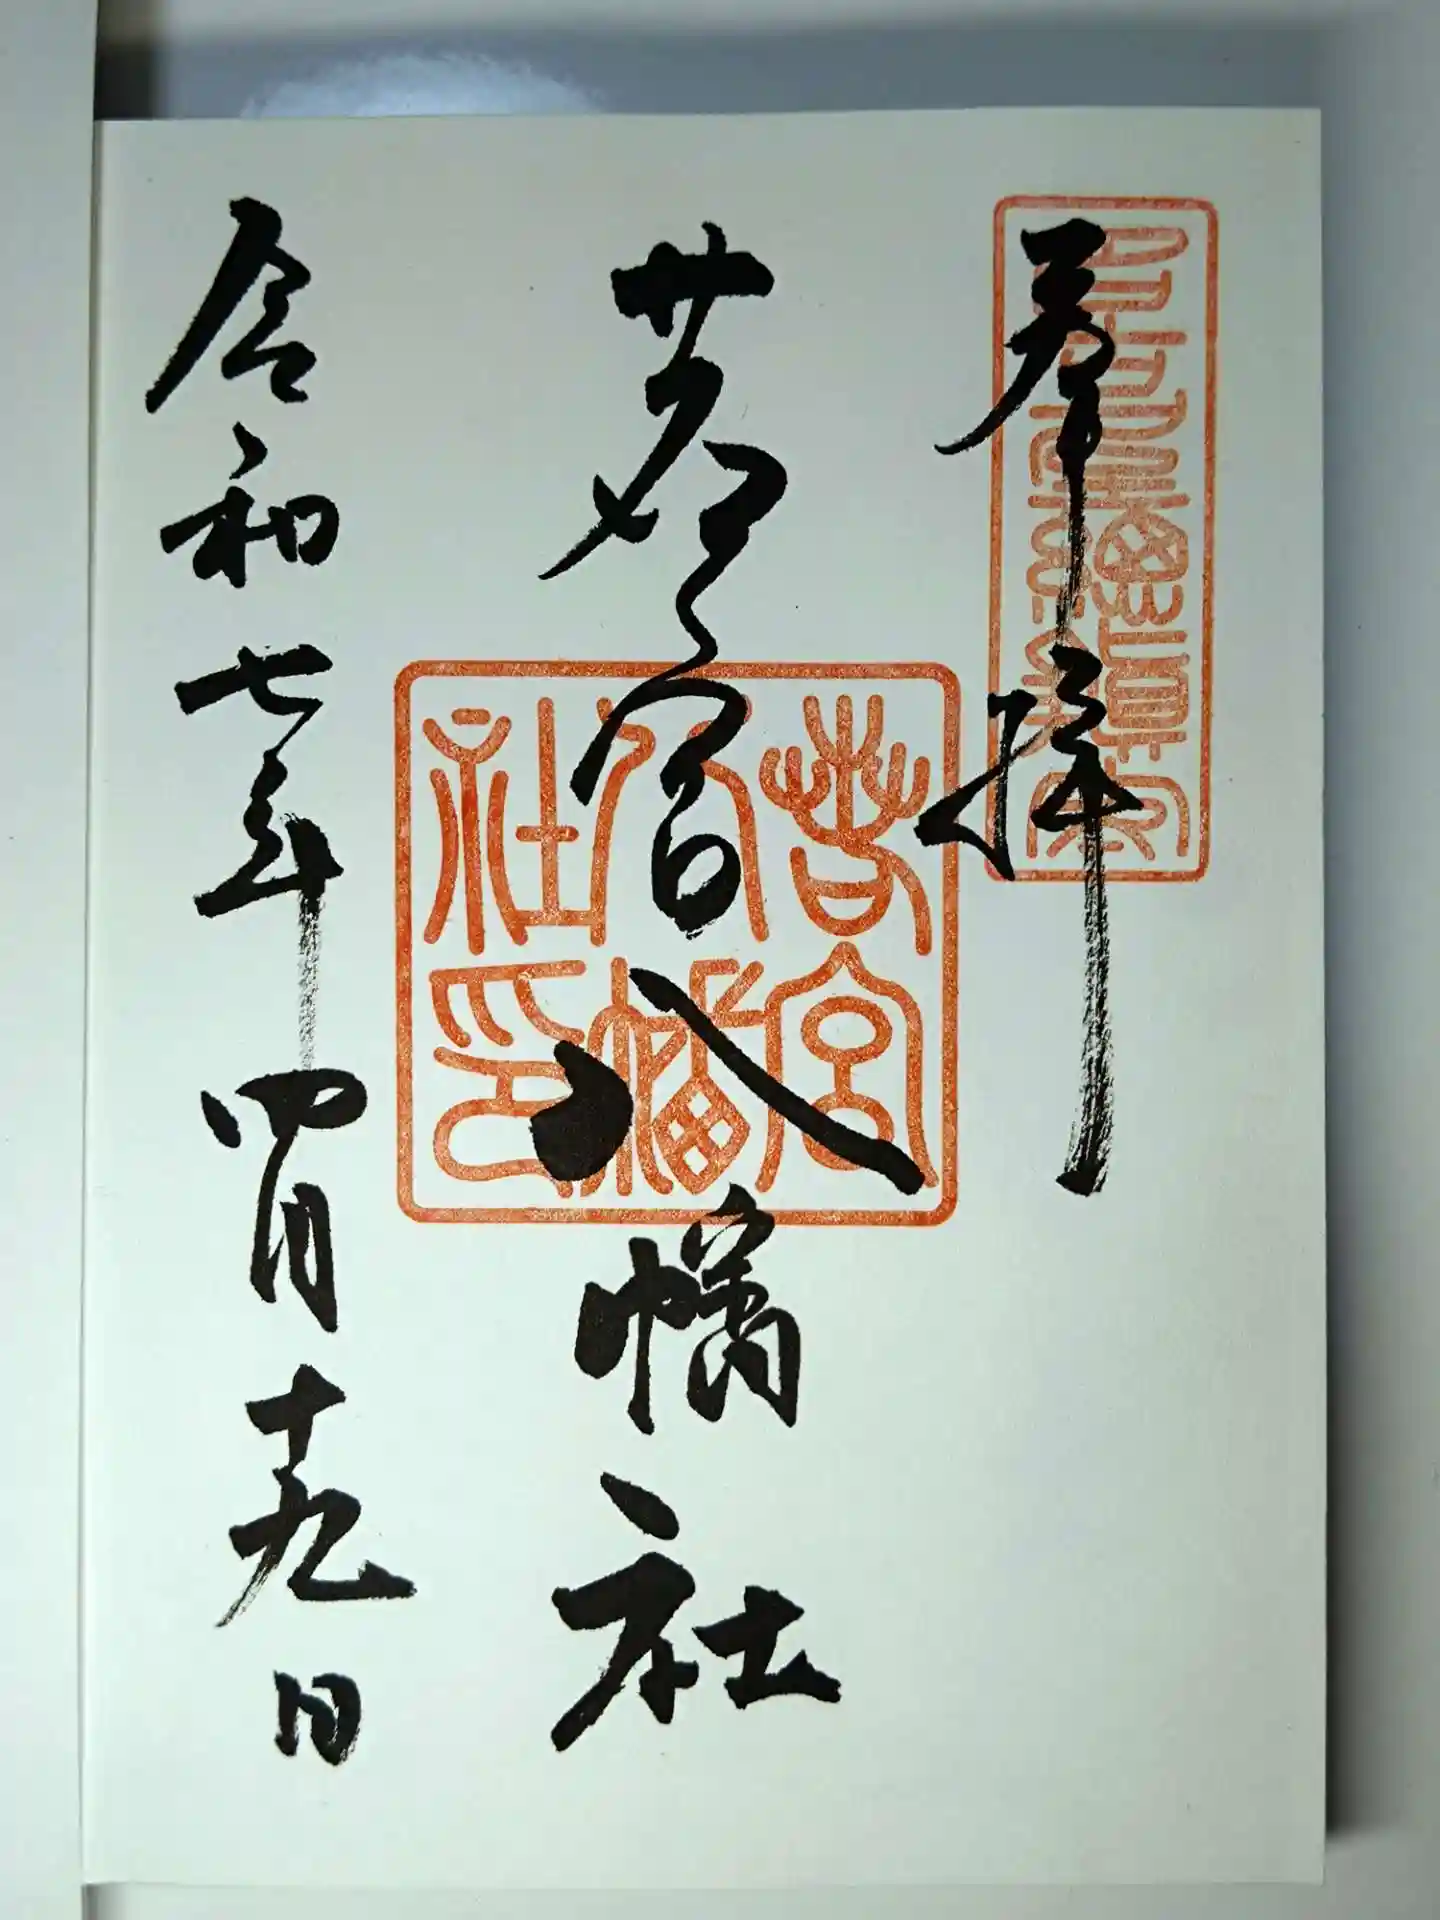 奉拝
若宮八幡社
若宮
八幡
社印
令和七年四月十九日